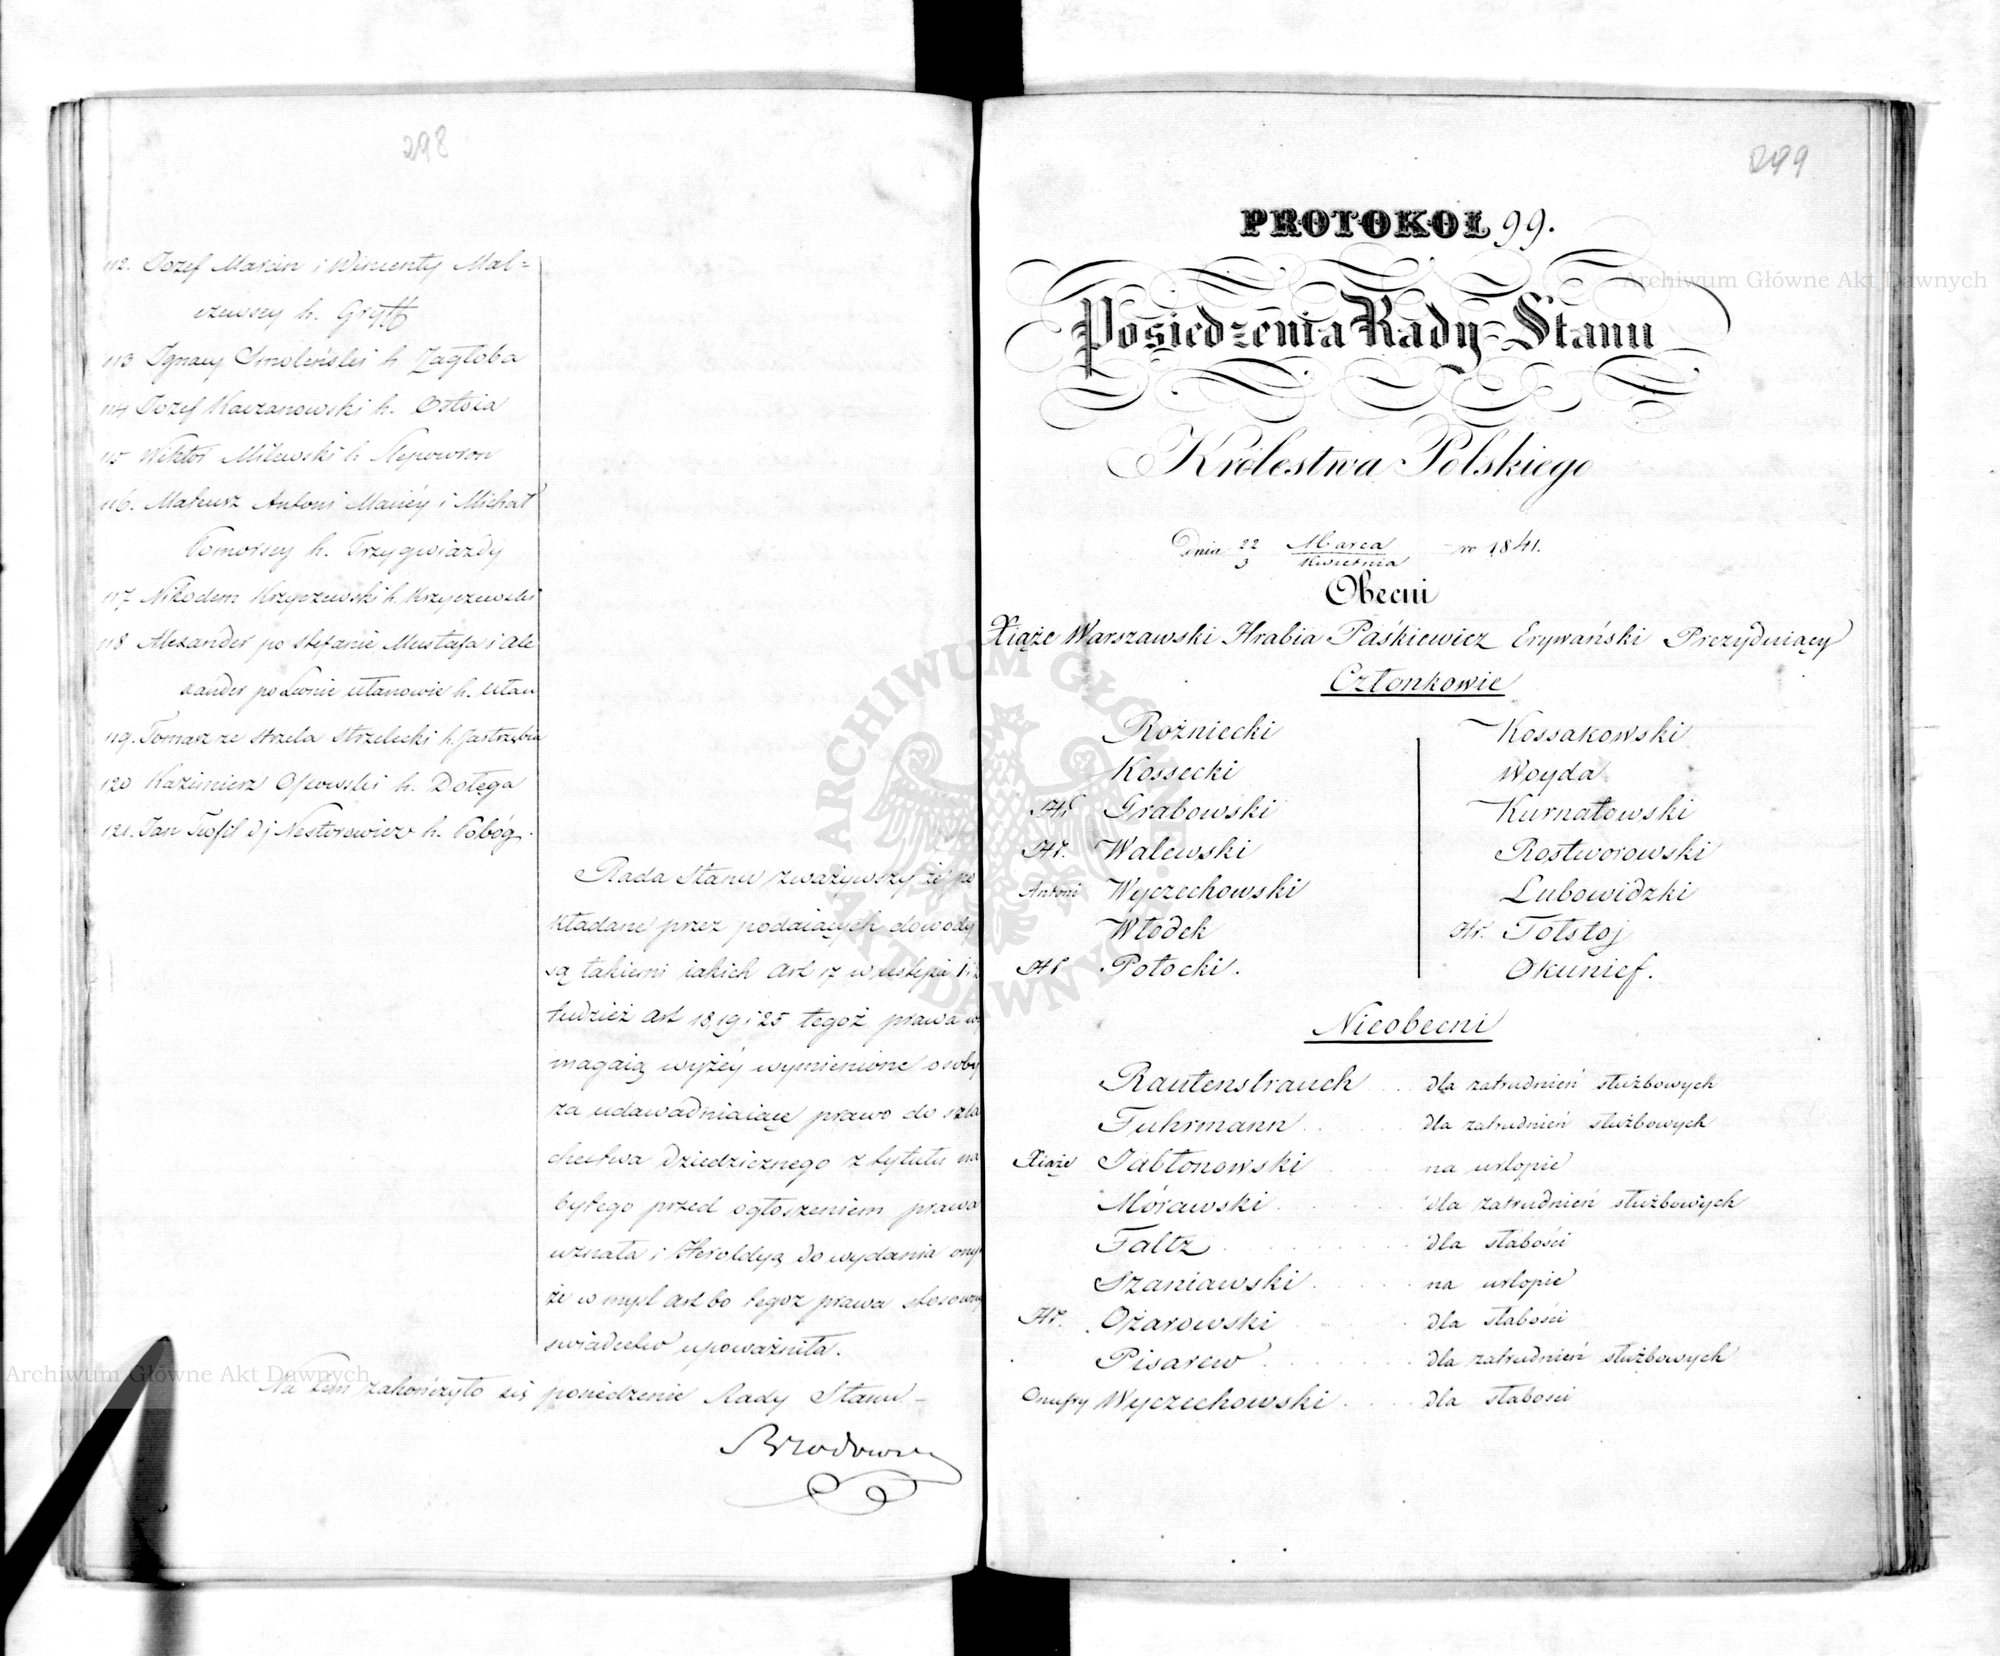 298
112. Jozef Marcin i Wincenty Mal=
czewscy h. Gryff
113 Ignacy Smoleński h. Zagłoba
114 Jozef Kaczanowski h. Ostoia
115 Wiktor Milewski h. Slepowron
116. Mateusz Antoni Maciéy i Michał
Pomorscy h. Trzygwiazdy
117 Nikodem Krzyczewski h. Krzyczewski
118 Alexander po Stefanie Mustafa i Ale
xander po Leonie Ułanowie h. Ułan
119. Tomasz ze Strzela Strzelecki h. Jastrzębiec
120 Kazimierz h. Dołęga
121. Jan Teofil Nestorowicz h. Pobóg.
Rada Stanu zważywszy że po
kładane przez podaiących dowody
są takiemi iakich Art 17 w ustępie 1 i 2
tudzież Art 18, 19 i 25 tegoż prawa wy
magaią wyżéy wymienione osoby
za udawadniaiące prawo do szla
chectwa dziedzicznego z tytułu na
bytego przed ogłoszeniem prawa
uznała i Heroldyą do wydania onym
że w myśl Art 60 tegoż prawa stosowny
swiadectw upoważniła.
Na tem zakończyło się posiedzenie Rady Stanu
299
PROTOKÓŁ 99.
Posiedzenia Rady Stanu
Królestwa Polskiego
Dnia 22 Marca
3 Kwietnia w 1841.
Obecni
Xiąże Warszawski Hrabia Paśkiewicz Erywański Prezyduiący
Członkowie
Rożniecki Kossakowski
Kossecki Woyda
Hr Grabowski Kurnatowski
Hr. Walewski Rostworowski
Antoni Wyczechowski Lubowidzki
Włodek Hr. Tołstoj
Hr Potocki. Okunief.
Nieobecni
Rautenstrauch dla zatrudnień służbowych
Fuhrmann dla zatrudnień służbowych
Xiąże Jabłonowski na urlopie
Mórawski dla zatrudnień służbowych
Faltz dla słabości
Szaniawski na urlopie
Hr. Ożarowski dla słabości
Pisarew dla zatrudnień służbowych
Onufry Wyczechowski dla słabosci
Archiwum Główne Akt Dawnych
Archiwum Główne Akt Dawnych
ARCHIWUM GŁÓWNE AKT DAWNYCH